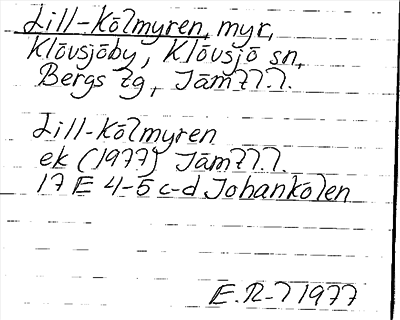 Lill-Kölmyren, myr,
Klövsjöby, Klövsjö sn,
Bergs tg, Jämtl.l.
Lill-Kölmyren
ek (1977) Jämtl.l.
17 E 4-5 c-d Johankölen
E.R-l 1977